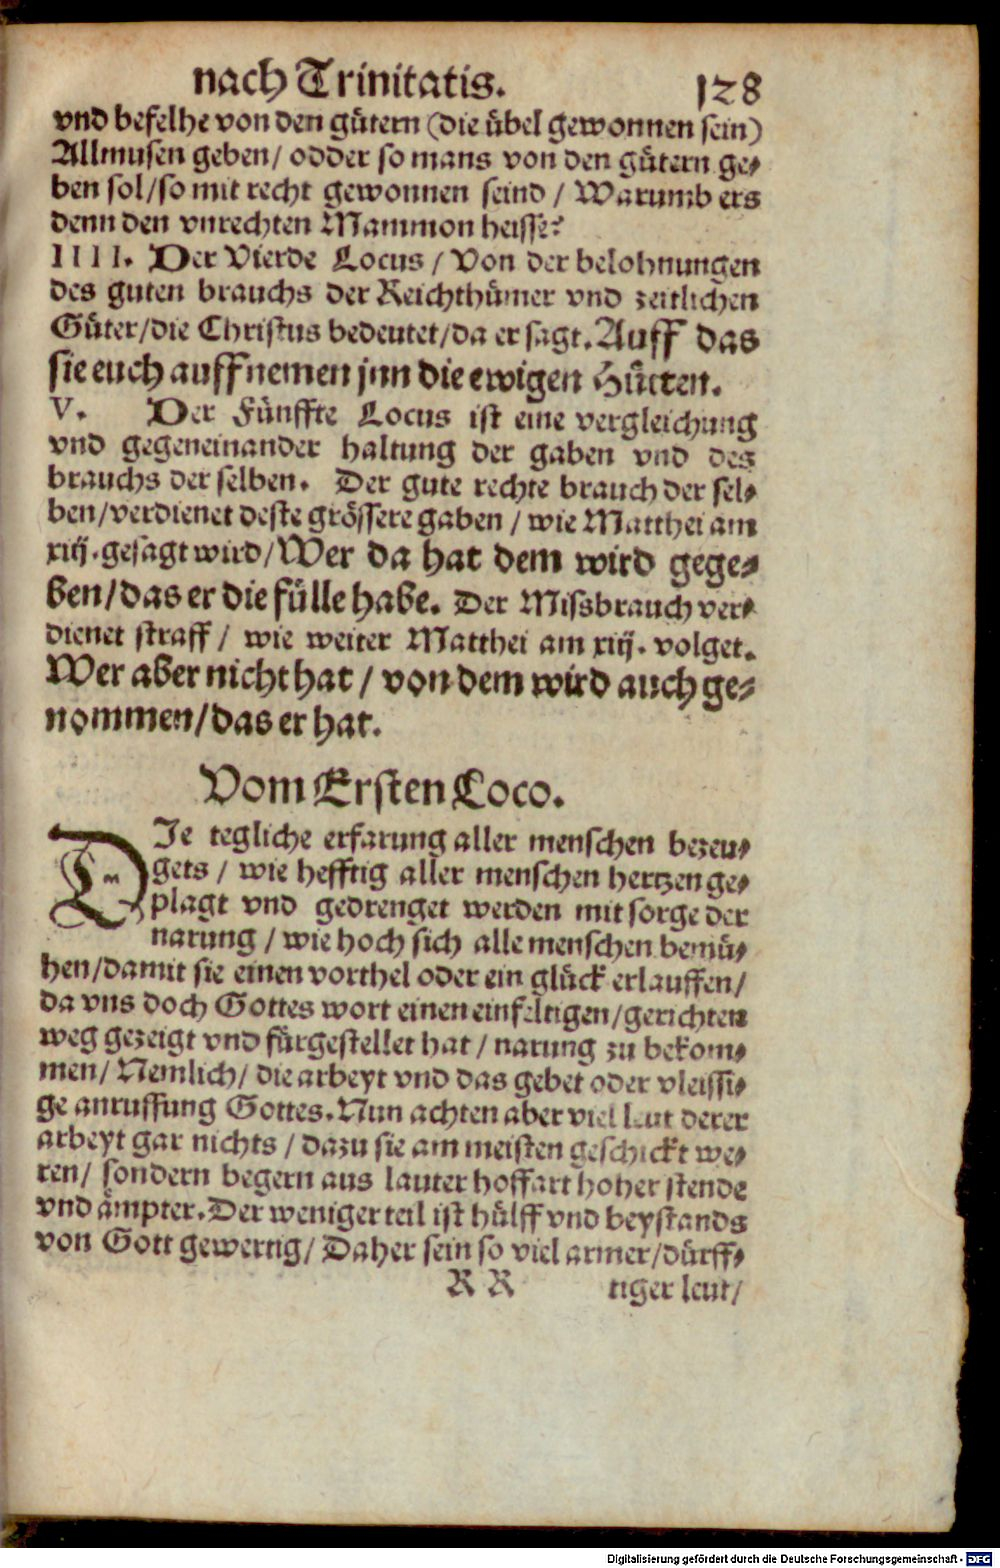 nach Trinitatis. 128
vnd befelhe von den gütern (die übel gewonnen sein)
Allmusen geben/ odder so mans von den gütern ge⸗
ben sol/so mit recht gewonnen seind / Warumb ers
denn den vnrechten Mammon heisse?
IIII. Der Vierde Locus / Von der belohnungen
des guten brauchs der Reichthümer vnd zeitlichen
Güter/die Christus bedeutet/da er sagt. Auff das
sie euch auffnemen jnn die ewigen Hütten.
V. Der Fünffte Locus ist eine vergleichung
vnd gegeneinander haltung der gaben vnd des
brauchs der selben. Der gute rechte brauch der sel⸗
ben/verdienet deste grössere gaben / wie Matthei am
xiij. gesagt wird/ Wer da hat dem wird gege⸗
ben/das er die fülle habe. Der Missbrauch ver⸗
dienet straff / wie weiter Matthei am xiij. volget.
Wer aber nicht hat / von dem wird auch ge⸗
nommen/das er hat.
Vom Ersten Loco.
DJe tegliche erfarung aller menschen bezeu⸗
gets / wie hefftig aller menschen hertzen ge⸗
plagt vnd gedrenget werden mit sorge der
narung / wie hoch sich alle menschen bemü⸗
hen/damit sie einen vorthel oder ein glück erlauffen/
da vns doch Gottes wort einen einfeltigen/gerichten
weg gezeigt vnd fürgestellet hat / narung zu bekom⸗
men/ Nemlich/ die arbeyt vnd das gebet oder vleissi⸗
ge anruffung Gottes. Nun achten aber viel leut derer
arbeyt gar nichts / dazu sie am meisten geschickt we⸗
ren/ sondern begern aus lauter hoffart hoher stende
vnd ämpter. Der weniger teil ist hülff vnd beystands
von Gott gewertig/ Daher sein so viel armer/dürff⸗
R R tiger leut/
Digitalisierung gefördert durch die Deutsche Forschungsgemeinschaft - DFG